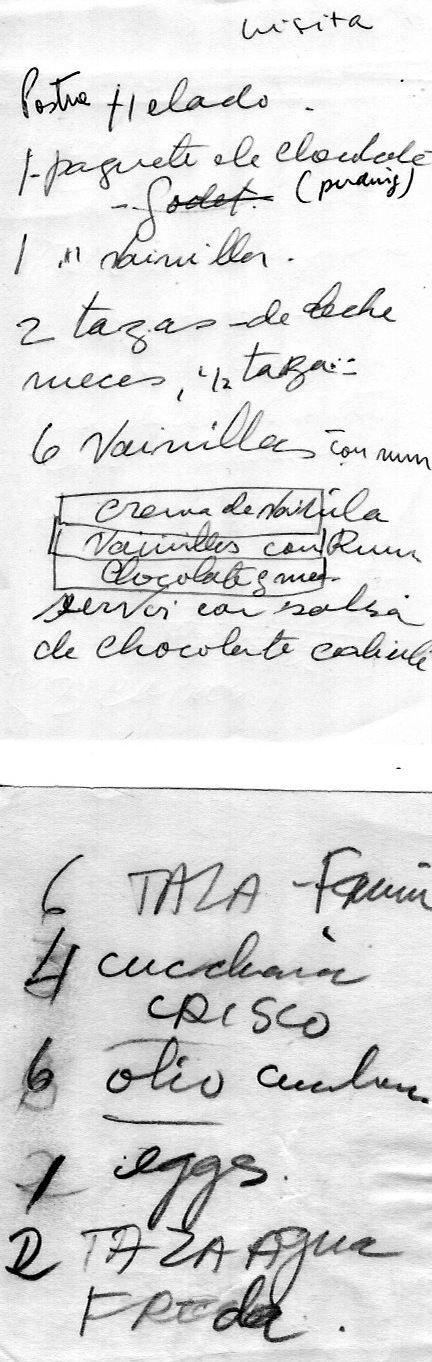 visita
Postre Helado.
1-paquete de chocolate
- Godet. (puding)
1 " vainilla.
2 tazas de leche
nueces, 1/2 taza
6 Vainillas con rum
crema de Vainilla
Vainillas con Rum
Chocolate y nuec.
servir con salsa
de chocolate caliente
6 TAZA - Farin
4 cucchaia
CRISCO
6 olio
1 eggs.
2 TAZA Agua
FREdda.